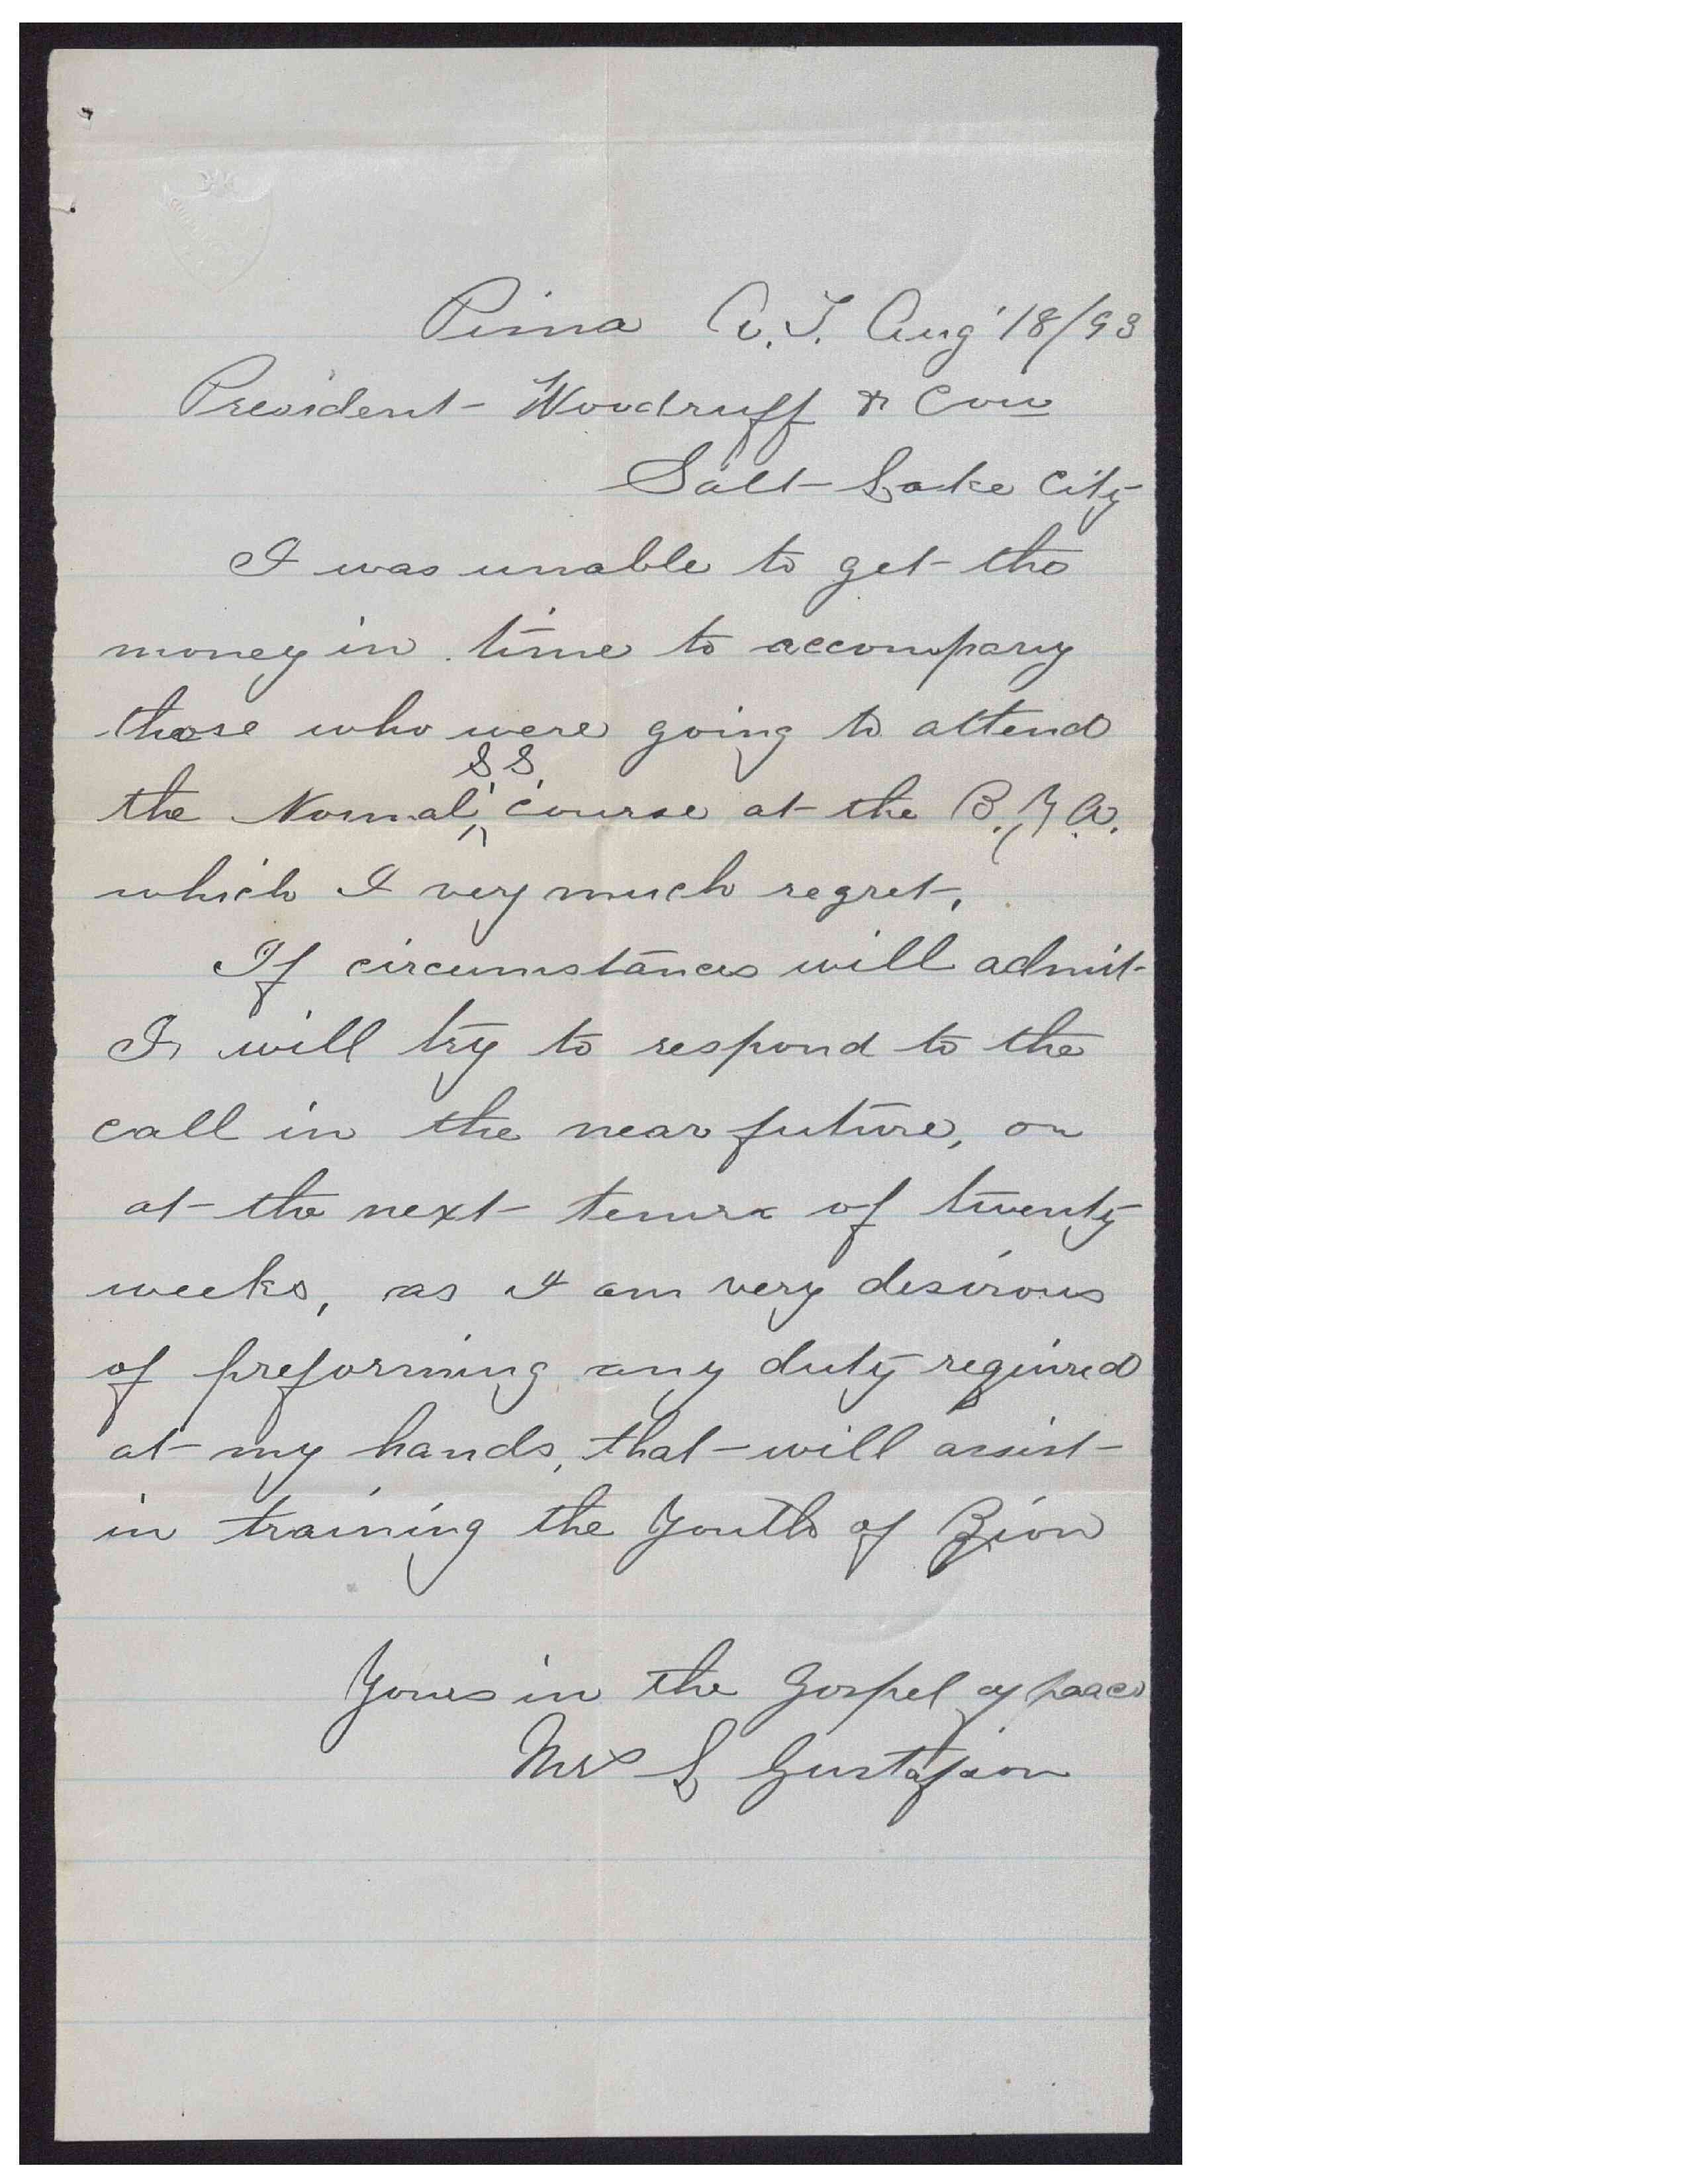 Pima A.T. Aug 18/93
President Woodruff & Cou
Salt Lake City
I was unable to get the
money in time to accompany
those who were going to attend
S.S.
the Normal, course at the B.Y.A.
which I very much regret.
If circumstances will admit
I will try to respond to the
call in the near future, or
at the next term of twenty
weeks, as I am very desirous
of preforming any duty required
at my hands, that will assist
in training the Youth of Zion
Yours in the Gospel of peace
Mrs L Gustafson